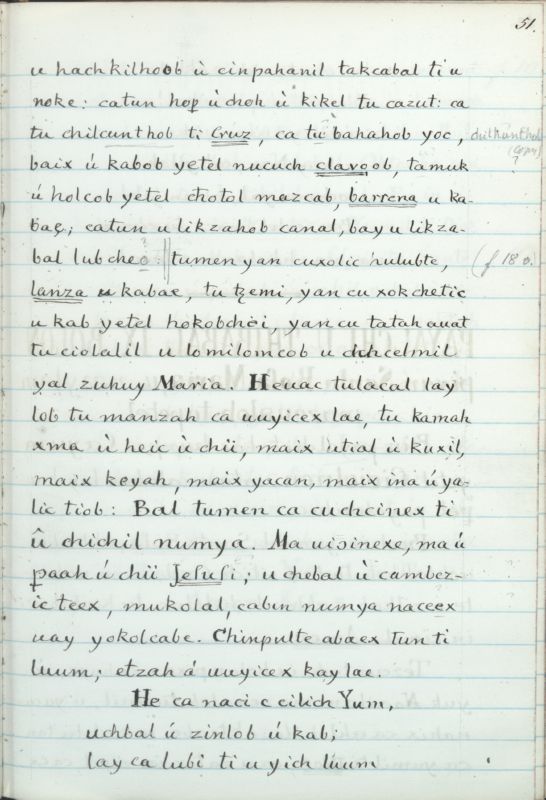 51.
u hachkilhoob ù cinpahanil takcabal ti u
noke: catun hop ù choh ù kikel tu cazut: ca
tu chilcunthob ti Cruz, ca tu bahahob yoc, chilkunthob
(Copy)
?
baix ú kabob yetel nucuch clavoob, tamuk
ú holcob yetel chotol mazcab, barrena u ka-
bae; catun u likzahob canal, bay u likza-
bal lub cheo: tumen yan cuxolic hulubte, (f 18 o.)
lanza u kabae, tu tzemi, yan cu xokchetic
u kab yetel hokobchéi, yan cu tatah auat
tu ciolalil u lomilomcob u chchcelmil
yal zuhuy Maria. Heuac tulacal lay
lob tu manzah ca uuyicex lae, tu kamah
xma ù heic ù chii, maix utial ù kuxil,
maix keyah, maix yacan, maix ina ú ya-
lic tiob: Bal tumen ca cuchcinex ti
û chichil numya. Ma uioinexe, ma ú
paah ú chii Jesusi; uchebal ù cambez-
ic teex, mukolal, cabin numya naceex
uay yokolcabe. Chinpulte abaex tun ti
luum; etzah á uuyicex kay lae.
He ca naci c cilich Yum,
uchbal ú zinlob ú kab;
lay ca lubi ti u yich luum